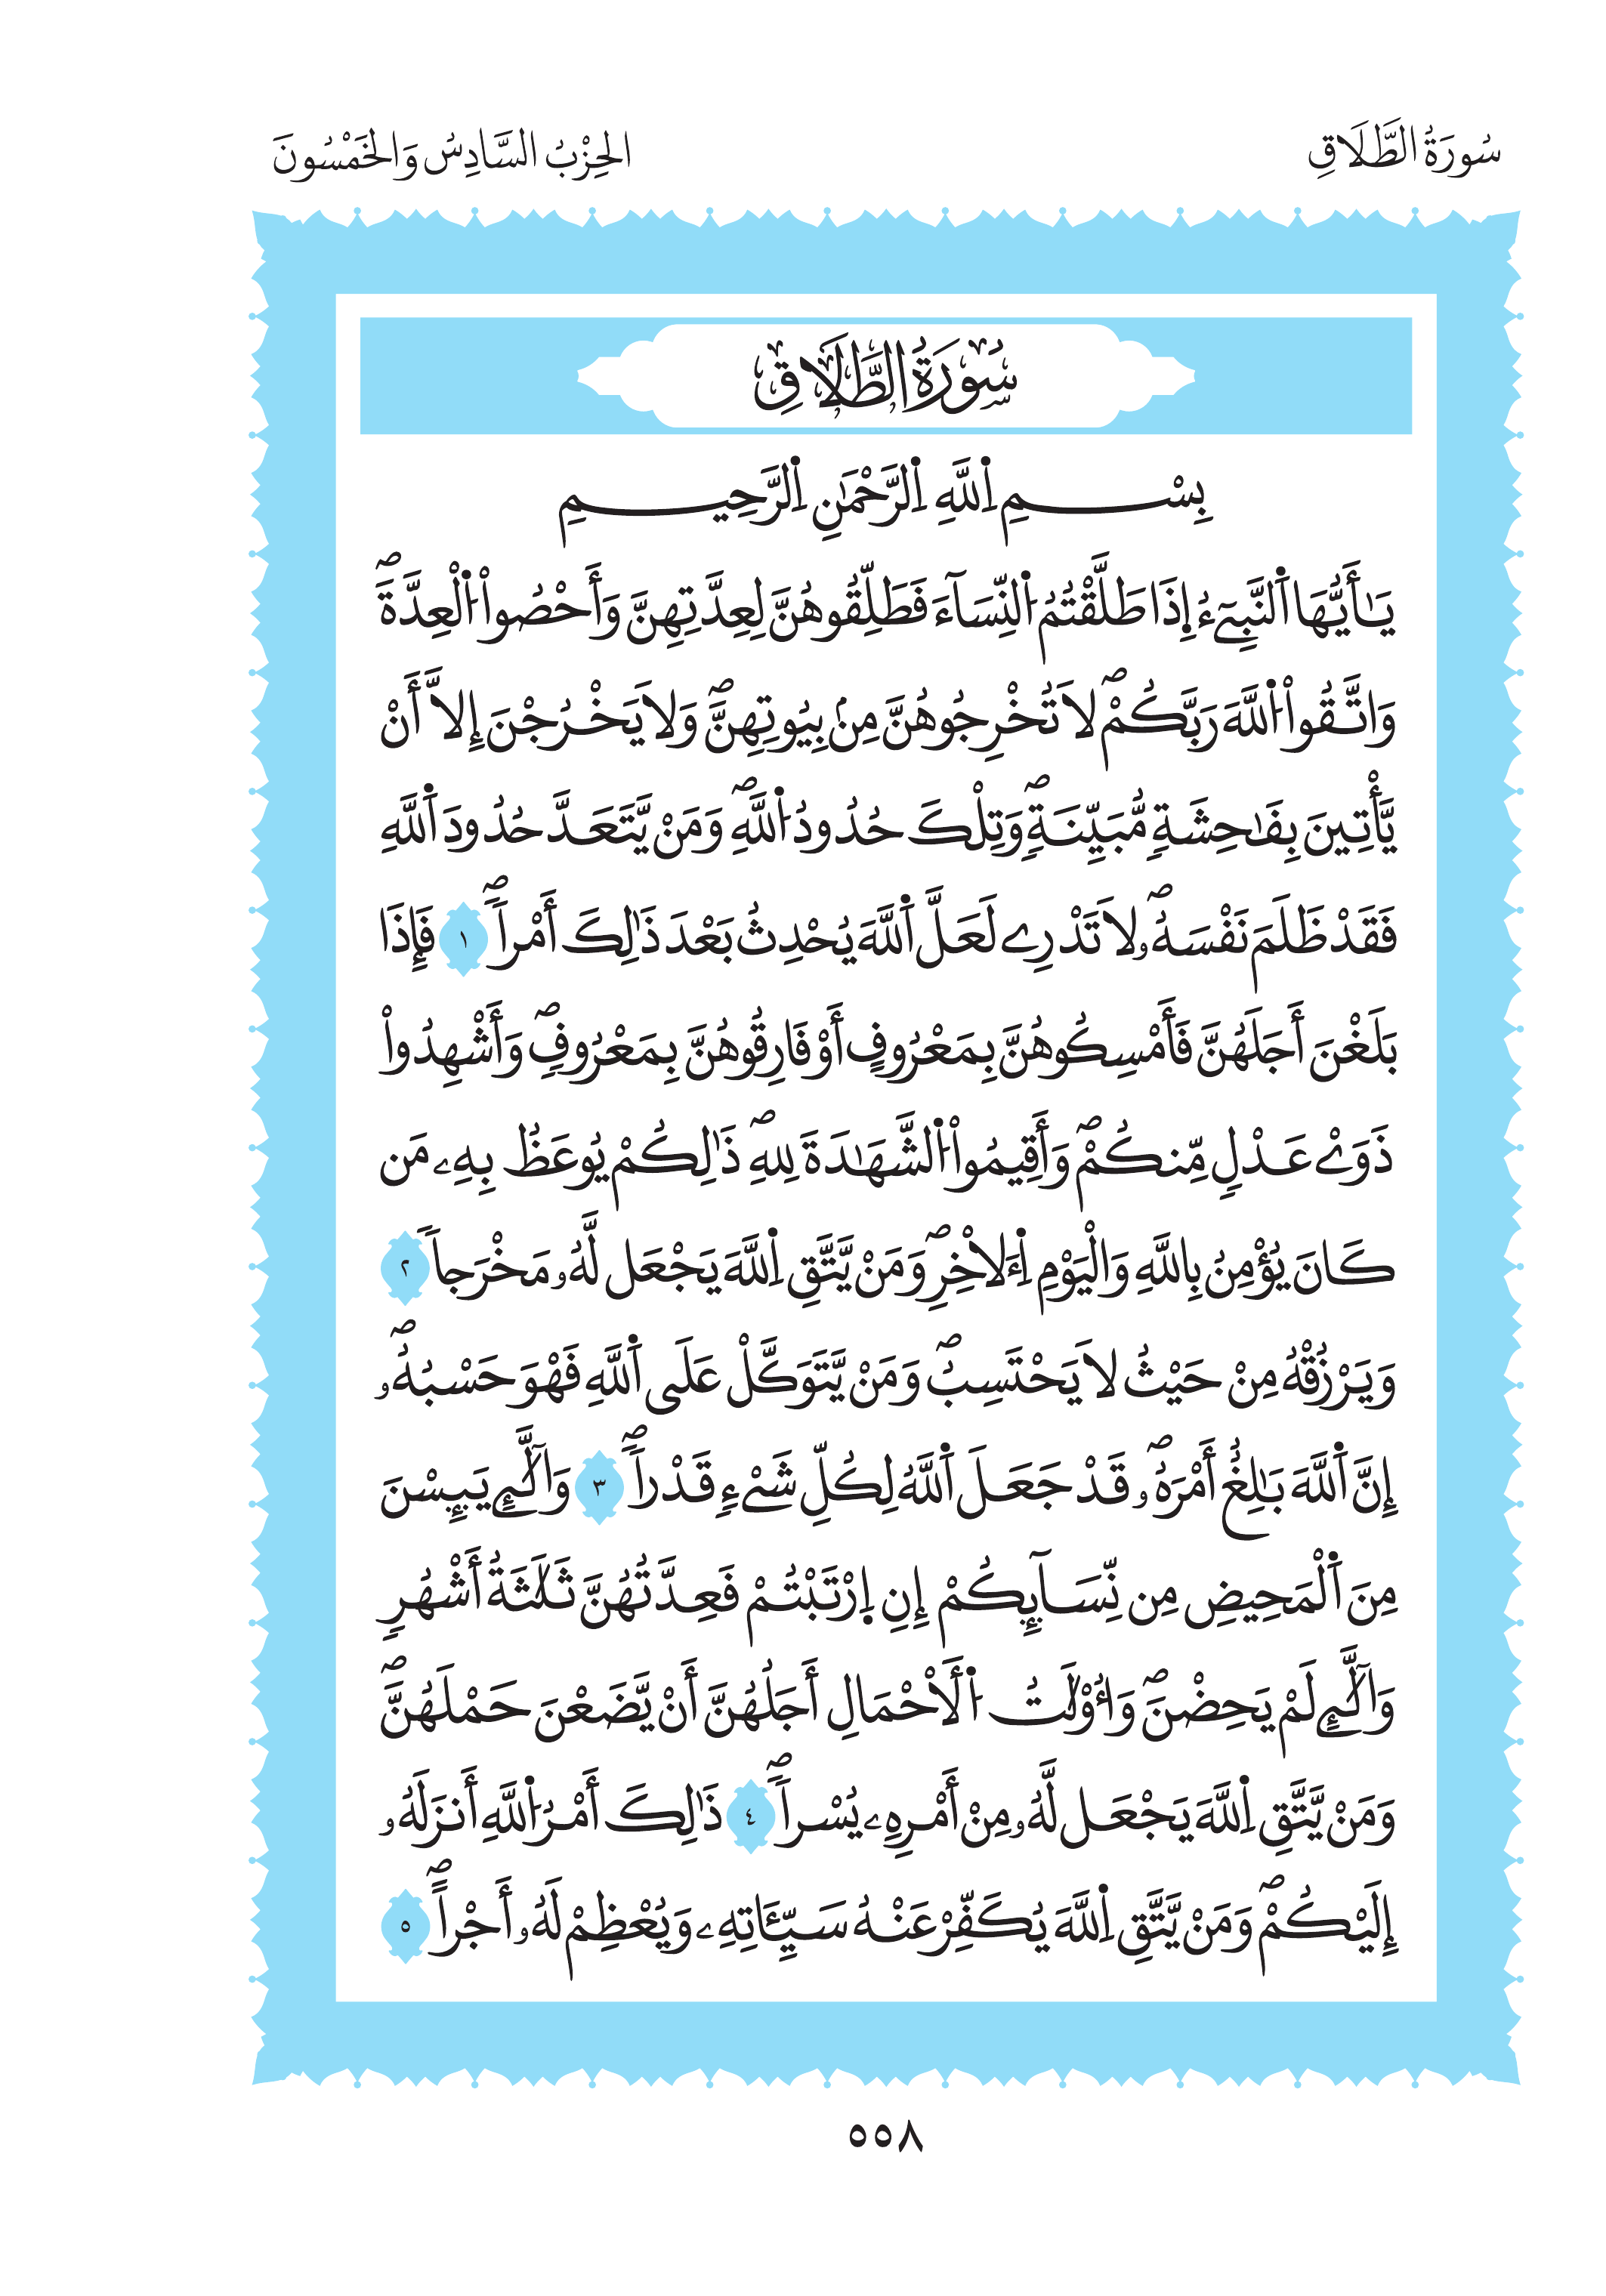 سُورَةُ الطَّلَاقِ
الحِزْبُ السَّادِسُ وَالخَمْسُونَ
سُورَةُ الطَّلَاقِ
بِسْمِ اِ۬للَّهِ اِ۬لرَّحْمَٰنِ اِ۬لرَّحِيمِ
يَٰٓأَيُّهَا اَ۬لنَّبِےٓءُ اِ۪ذَا طَلَّقْتُمُ اُ۬لنِّسَآءَ فَطَلِّقُوهُنَّ لِعِدَّتِهِنَّ وَأَحْصُواْ اُ۬لْعِدَّةَۖ
وَاتَّقُواْ اُ۬للَّهَ رَبَّكُمْۖ لَا تُخْرِجُوهُنَّ مِنۢ بِيُوتِهِنَّۖ وَلَا يَخْرُجْنَ إِلَّآ أَنْ
يَّأْتِينَ بِفَٰحِشَةٖ مُّبَيِّنَةٖۖ وَتِلْكَ حُدُودُ اُ۬للَّهِۖ وَمَنْ يَّتَعَدَّ حُدُودَ اَ۬للَّهِ
فَقَدْ ظَلَمَ نَفْسَهُۥۖ لَا تَدْرِے لَعَلَّ اَ۬للَّهَ يُحْدِثُ بَعْدَ ذَٰلِكَ أَمْراٗۖ ١ فَإِذَا
بَلَغْنَ أَجَلَهُنَّ فَأَمْسِكُوهُنَّ بِمَعْرُوفٍ أَوْ فَارِقُوهُنَّ بِمَعْرُوفٖۖ وَأَشْهِدُواْ
ذَوَےْ عَدْلٖ مِّنكُمْۖ وَأَقِيمُواْ اُ۬لشَّهَٰدَةَ لِلهِۖ ذَٰلِكُمْ يُوعَظُ بِهِۦ مَن
كَانَ يُؤْمِنُ بِاللَّهِ وَالْيَوْمِ اِ۬ءَلْأخِرِۖ وَمَنْ يَّتَّقِ اِ۬للَّهَ يَجْعَل لَّهُۥ مَخْرَجاٗ ٢
وَيَرْزُقْهُ مِنْ حَيْثُ لَا يَحْتَسِبُۖ وَمَنْ يَّتَوَكَّلْ عَلَى اَ۬للَّهِ فَهْوَ حَسْبُهُۥۖ
إِنَّ اَ۬للَّهَ بَٰلِغٌ أَمْرَهُۥۖ قَدْ جَعَلَ اَ۬للَّهُ لِكُلِّ شَےْءٖ قَدْراٗۖ ٣ وَالَّٰٓـِٕے يَئِسْنَ
مِنَ اَ۬لْمَحِيضِ مِن نِّسَآئِكُمْ إِنِ اِ۪رْتَبْتُمْ فَعِدَّتُهُنَّ ثَلَٰثَةُ أَشْهُرٖ
وَالَّٰٓـِٕے لَمْ يَحِضْنَۖ وَأُوْلَٰتُ اُ۬لَاحْمَالِ أَجَلُهُنَّ أَنْ يَّضَعْنَ حَمْلَهُنَّۖ
وَمَنْ يَّتَّقِ اِ۬للَّهَ يَجْعَل لَّهُۥ مِنْ أَمْرِهِۦ يُسْراٗۖ ٤ ذَٰلِكَ أَمْرُ اُ۬للَّهِ أَنزَلَهُۥ
إِلَيْكُمْۖ وَمَنْ يَّتَّقِ اِ۬للَّهَ يُكَفِّرْ عَنْهُ سَيِّـَٔاتِهِۦ وَيُعْظِمْ لَهُۥ أَجْراًۖ ٥
٥٥٨